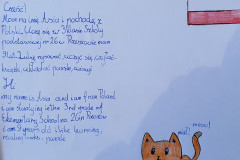 Cześć!
Mam na imię Asia i pochodzę z
Polski. Uczę się w 3 klasie Szkoły
podstawowej nr 20 w Rzeszowie mam
9 lat. Lubię uczyć się czytać
książki, układać puzzle,
Hi
my name is Asia and i am from Poland
i am studying in the 3rd grade of
Elementary School no 20 in Rzeszów
i am 9 years old i like learning,
reading books, puzzle
miau!
meow!